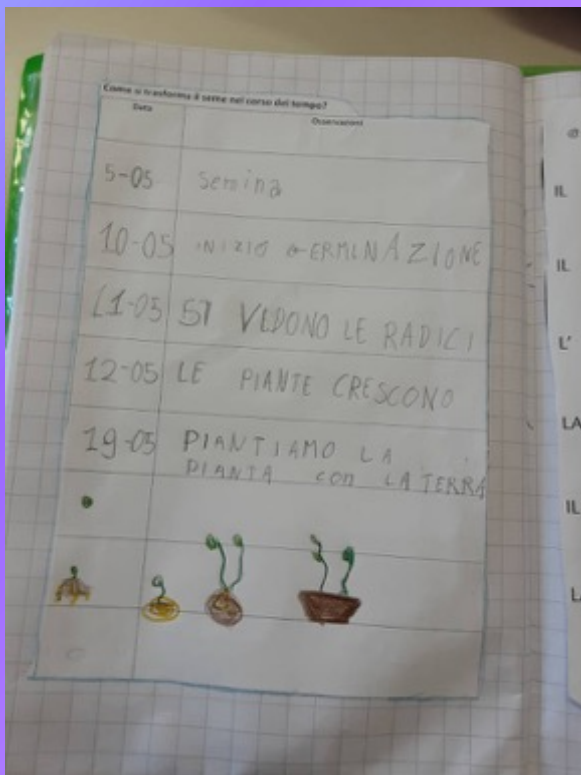 Come si trasforma il seme nel corso del tempo?
Data Osservazioni
5-05 semina
10-05 INIZIO GERMINAZIONE
11-05 SI VEDONO LE RADICI
12-05 LE PIANTE CRESCONO
19-05 PIANTIAMO LA
PIANTA con LA TERRA
IL
IL
L'
LA
IL